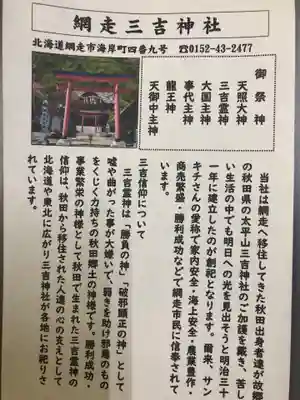 網走三吉神社
北海道網走市海岸町四番九号 ☎0152-43-2477
御祭神
天照大神
三吉霊神
大国主神
事代主神
龍王神
天御中主神
当社は網走へ移住してきた秋田出身者達が故郷
の秋田県の太平山三吉神社のご加護を戴き、苦し
い生活の中でも明日への光を見出そうと明治三十
一年に建立したのが創祀となります。爾来、サン
キチさんの愛称で家内安全・海上安全・農業豊作・
商売繁盛・勝利成功などで網走市民に信奉されて
三吉信仰について
三吉霊神は「勝負の神」「破邪顕正の神」として
嘘や曲がった事が大嫌いで、弱きを助け邪悪のもの
をくじく力持ちの秋田郷土の神様です。勝利成功・
事業繁栄の神様として秋田で生まれた三吉霊神の
信仰は、秋田から移住された人達の心の支えとして
北海道や東北に広がり三吉神社が各地にお祀りさ
れています。